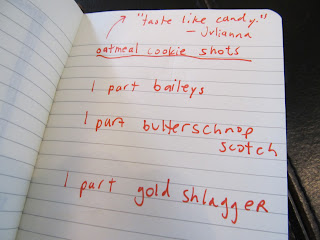 "taste like candy."
- Julianna
oatmeal cookie shots
1 part baileys
1 part butterschnap
scotch
1 part gold shlagger